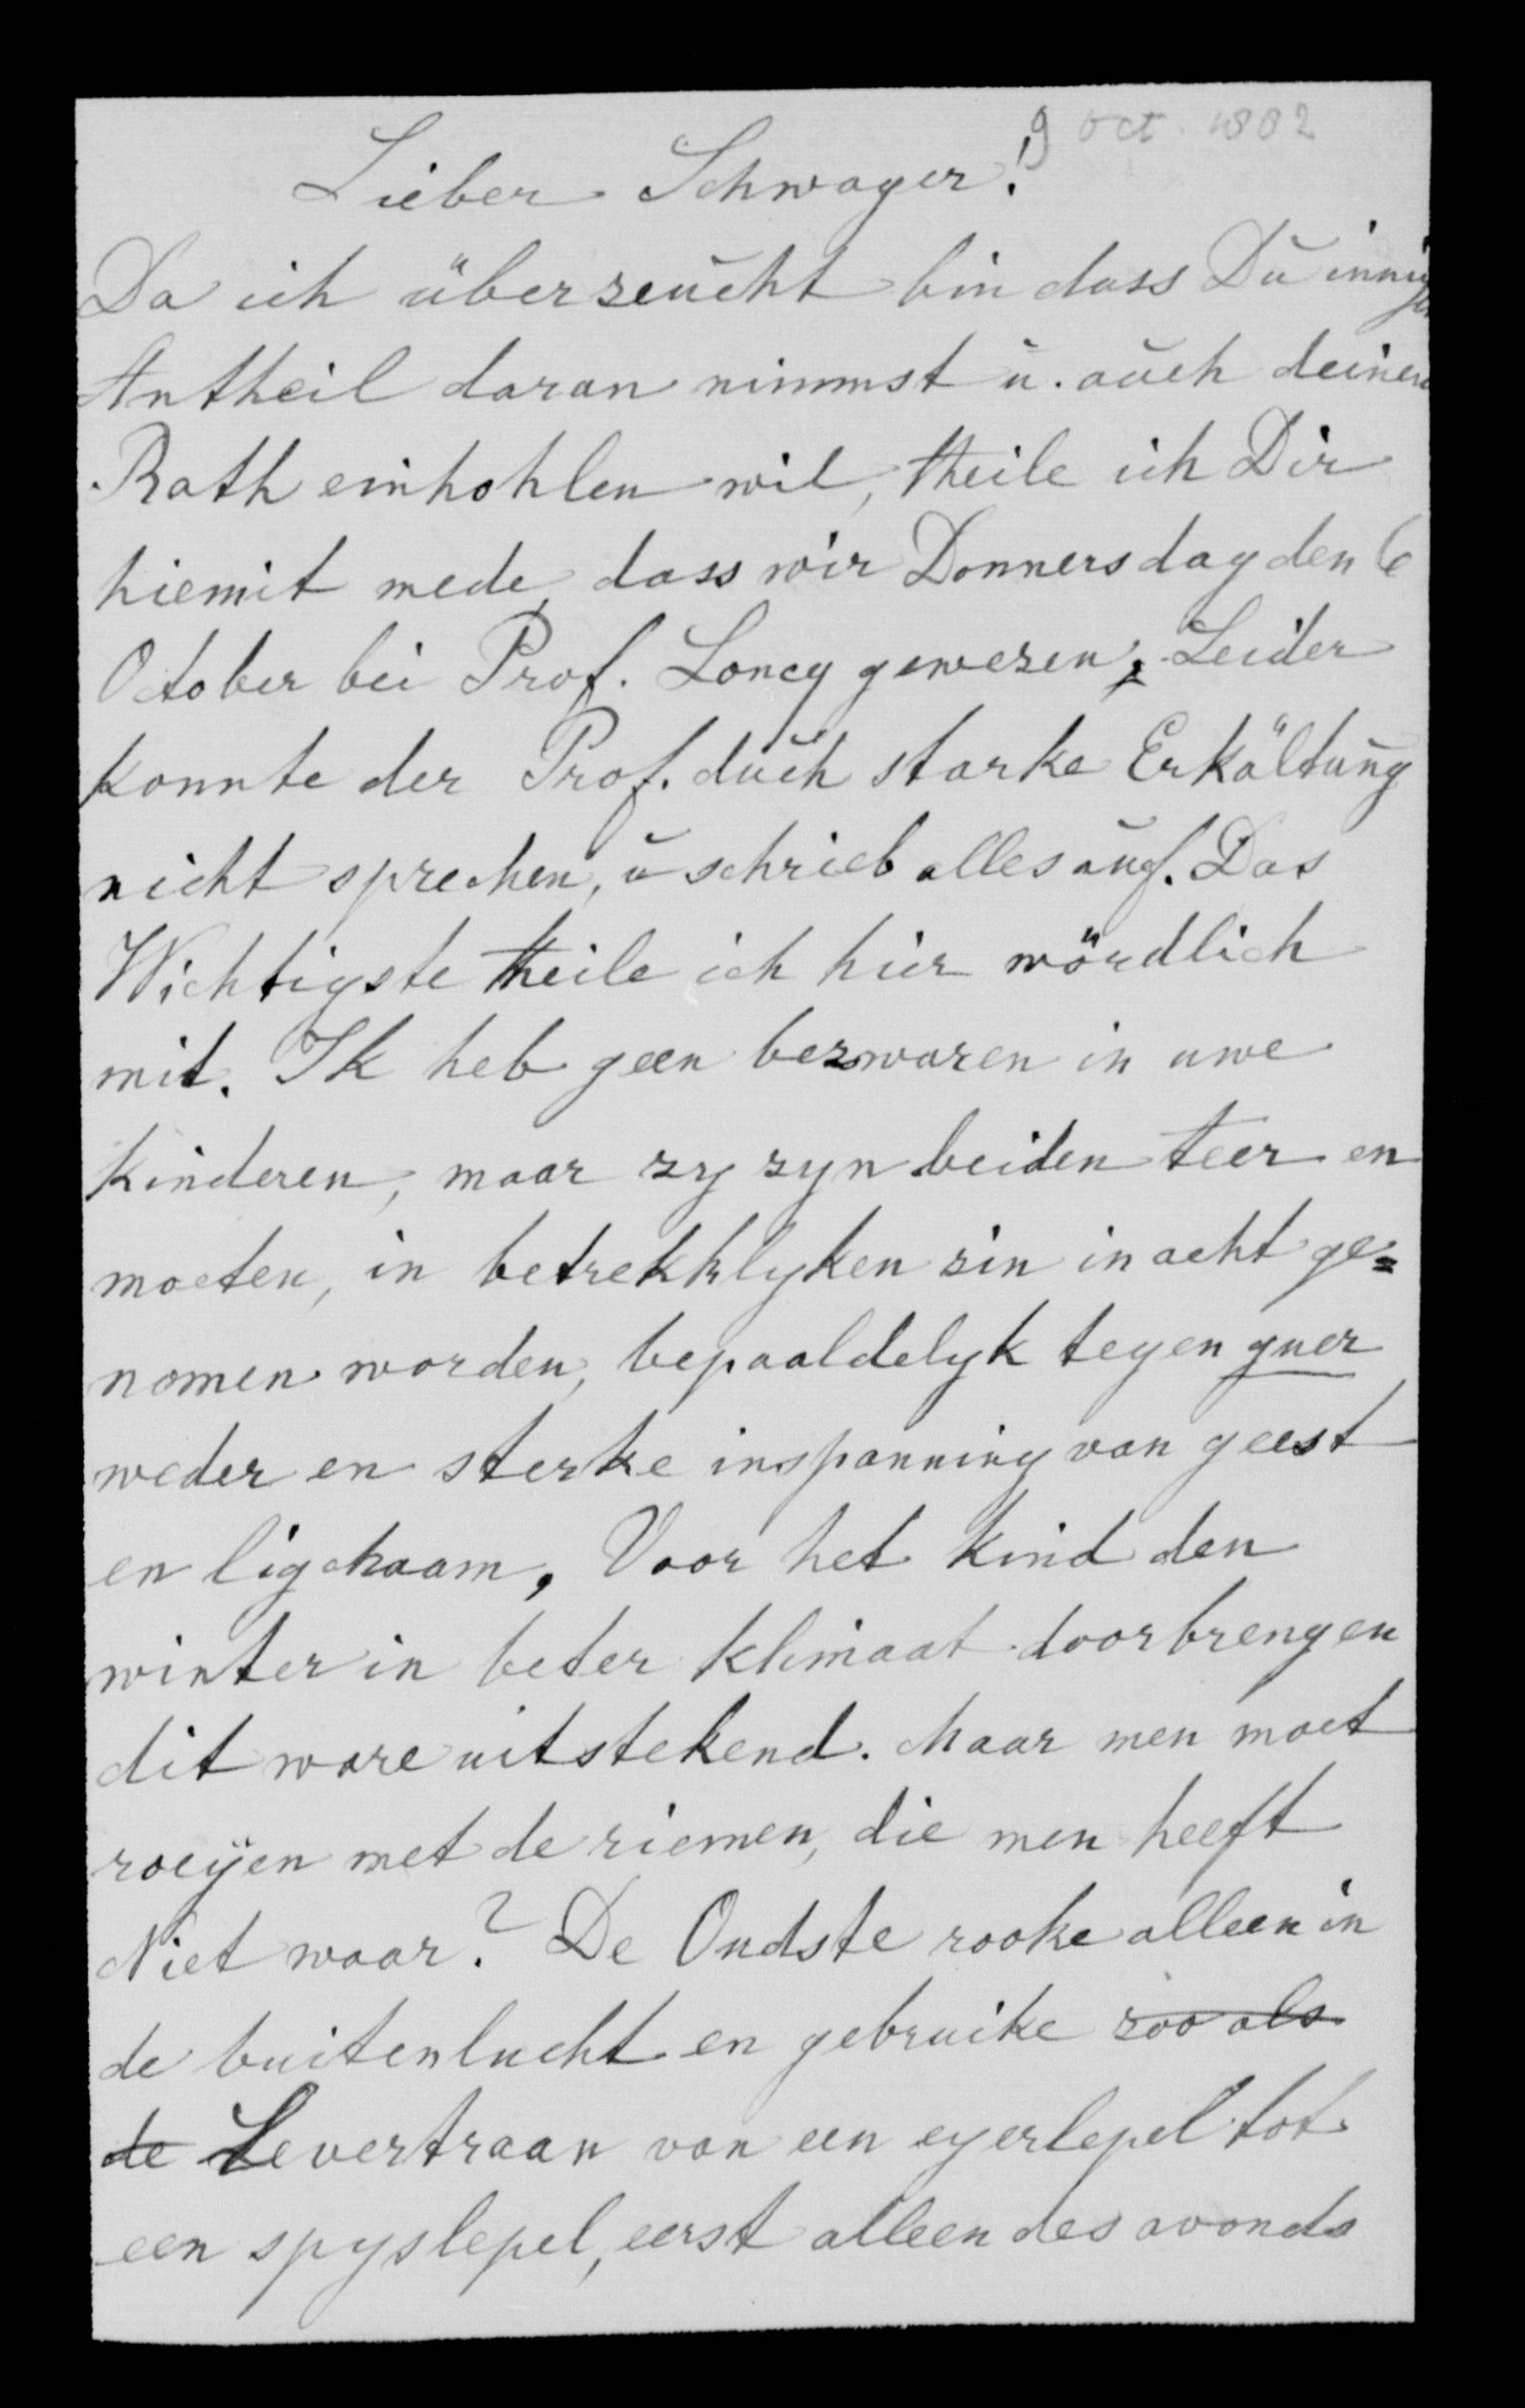 9 Oct. 1882
Lieber Schwager!
Da ich überzeucht bin dass Du innigen
Antheil daran nimmst u. auch deinen
Rath einhohlen wil, theile ich Dir
hiemit mede, dass wir Donnersdag den 6
October bei Prof. Loncq gewezen, Leider
konnte der Prof. duch starke Erkältung
nicht sprechen, u schrieb alles auf. Das
Wichtigste theile ich hier wördlich
mit. Ik heb geen bezwaren in uwe
kinderen, maar zy zyn beiden teer en
moeten, in betrekklyken zin in acht ge=
nomen worden, bepaaldelyk tegen guer
weder en sterke inspanning van geest
en ligchaam, Voor het kind den
winter in beter klimaat doorbrengen
dit ware uitstekend. Maar men moet
roeyen met de riemen, die men heeft
Niet waar? De Oudste rooke alleen in
de buitenlucht en gebruike zoo als
de Levertraan van een eyerlepel tot
een spyslepel, eerst alleen des avonds